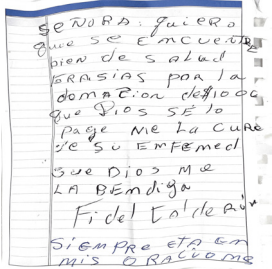 SEÑORA: quiero
que SE ENCUENTRE
bien de SALUD
GRASIAS POR la
domazion de $1000
que Dios SE lo
Page Me La CURE
de SU ENFEMED
que Dios Me
LA BEndiga
Fidel
SiEMPRE ETA EN
MIS ORACiONE